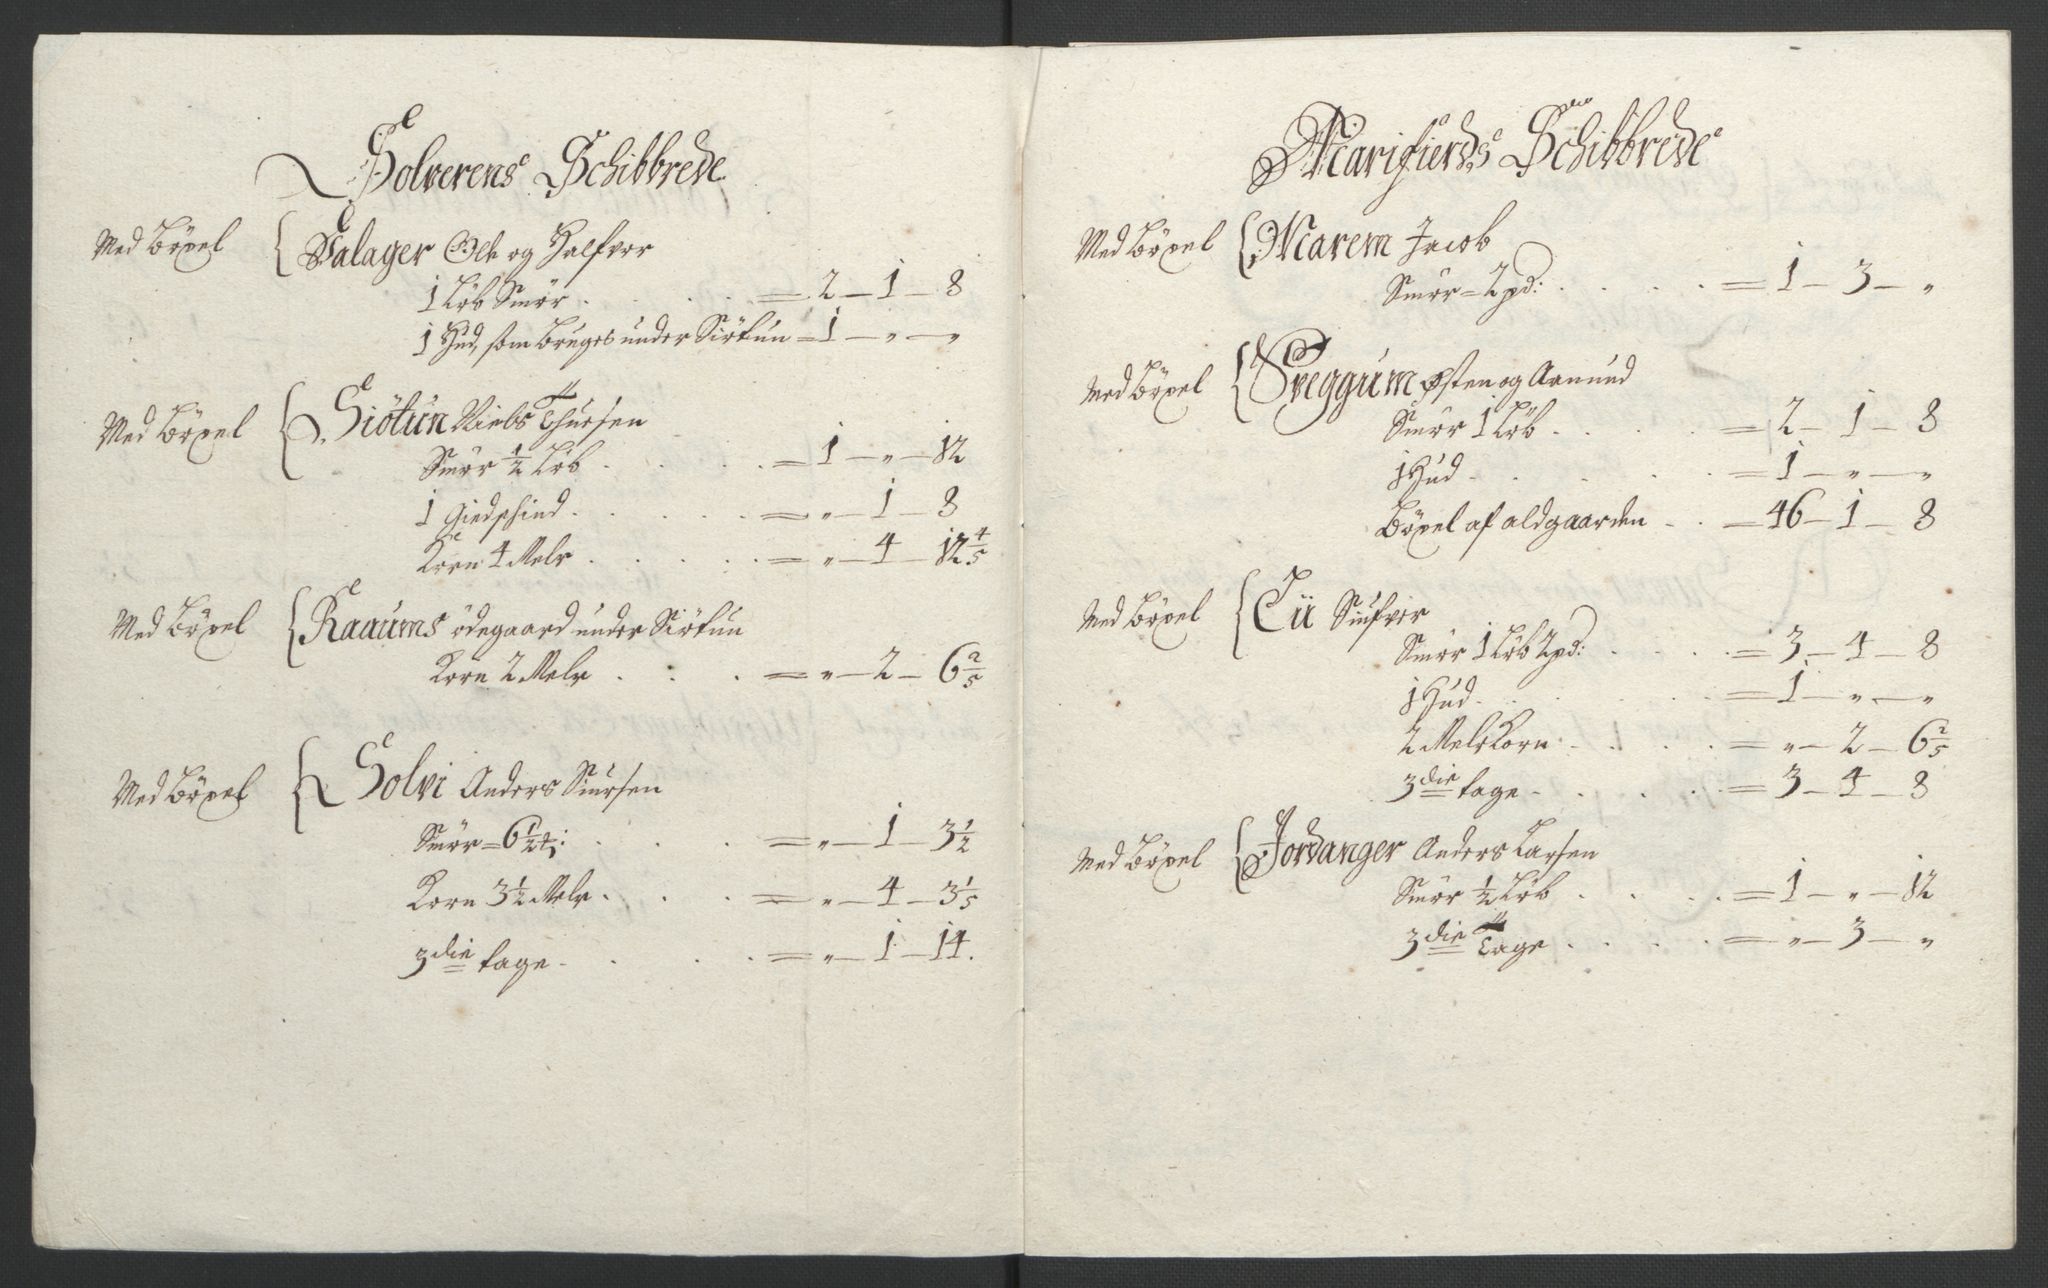 Solverens Schibbrede
Med Böxel Salager Ole og Halfvor
1 Löb Smör . . . . = 2 – 1 – 8
1 Hud, som bruges under Siötun = 1 – „ – „
Med Böxel Siötun Niels Thursen
Smör ½ Löb . . . . = 1 – „ – 12
1 Giedschind . . . . = „ – 1 – 8
Korn 4 Meler . . . . = „ – 4 – 12 4/5
Med Böxel Kaaums ödegaard under Siötun
Korn 2 Meler . . . = „ – 2 – 6 2/5
Med Böxel Solvi Anders Siursen
Smör = 6½ . . . = „ – 1 – 3½
Korn 3½ Meler . . . = „ – 4 – 3 1/5
3die tage . . . . = „ – 1 – 14.
Marifierds Schibbrede
Med Böxel Marem Jacob
Smör = 2 pd: . . . . = 1 – 3 – „
Med Böxel Sveggum Østen og Amund
Smör 1 Löb . . . . = 2 – 1 – 8
1 Hud . . . . = 1 – „ – „
Böxel af aldgaarden . . = 46 – 1 – 8
Med Böxel Tü Siufver
Smör 1 Löb 2 pd: . . . = 3 – 4 – 8
1 Hud . . . . = 1 – „ – „
2 Meler Korn . . . . = „ – 2 – 6 2/5
3die tage . . . . = 3 – 4 – 8
Med Böxel Jordanger Anders Larsen
Smör ½ Löb . . . . = 1 – „ – 12
3die Tage . . . . = „ – 3 – „